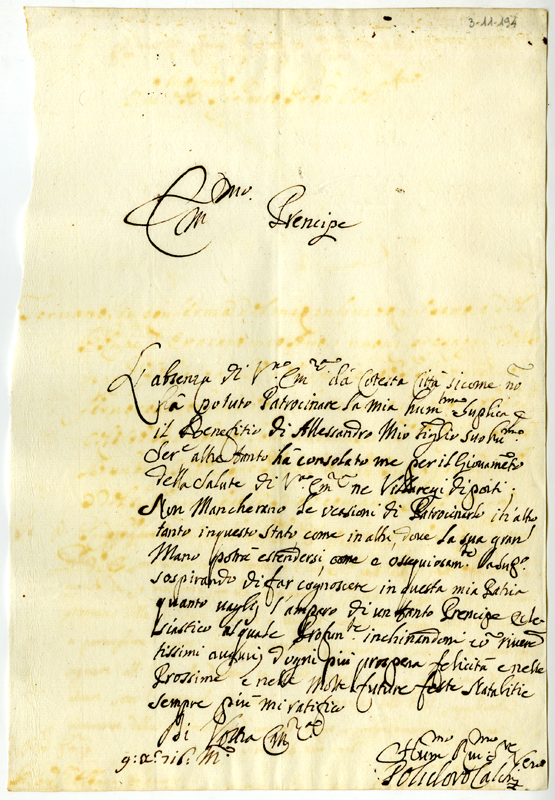 3-11-194
Em.mo Prencipe
L'absenza di V.ra Em.za da Cotesta Città sicome nō
hà potuto Patrocinare la mia hum.ma suplica
il Benefitio di Allessandro Mio figlio suo hu.mo
Ser.e altre tanto hà consolato me per il Giovam.to
della salute di V.ra Em.za ne diporti;
Non Mancherano le di Patrocinarlo altre
tanto in questo stato come in altri, dove la sua gran
Mano potrà estendersi, come e osequiosam.te
sospirando di far cognoscere in questa mia Patria
quanto vaglij l'amparo di un tanto Prencipe Ecle-
siastico al quale Profun.te inchinandomi cō riveren
tissimi augurij d'ogni più prospera felicità e nelle
Prossime e nelle Molte future feste Natalitie
sempre più mi ratifico
Di Vostra Em.za
Hum.mo